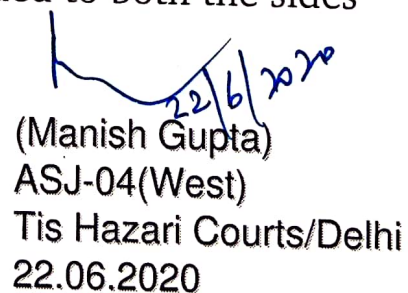 to both the sides
22/6/2020
(Manish Gupta)
ASJ-04(West)
Tis Hazari Courts/Delhi
22.06.2020